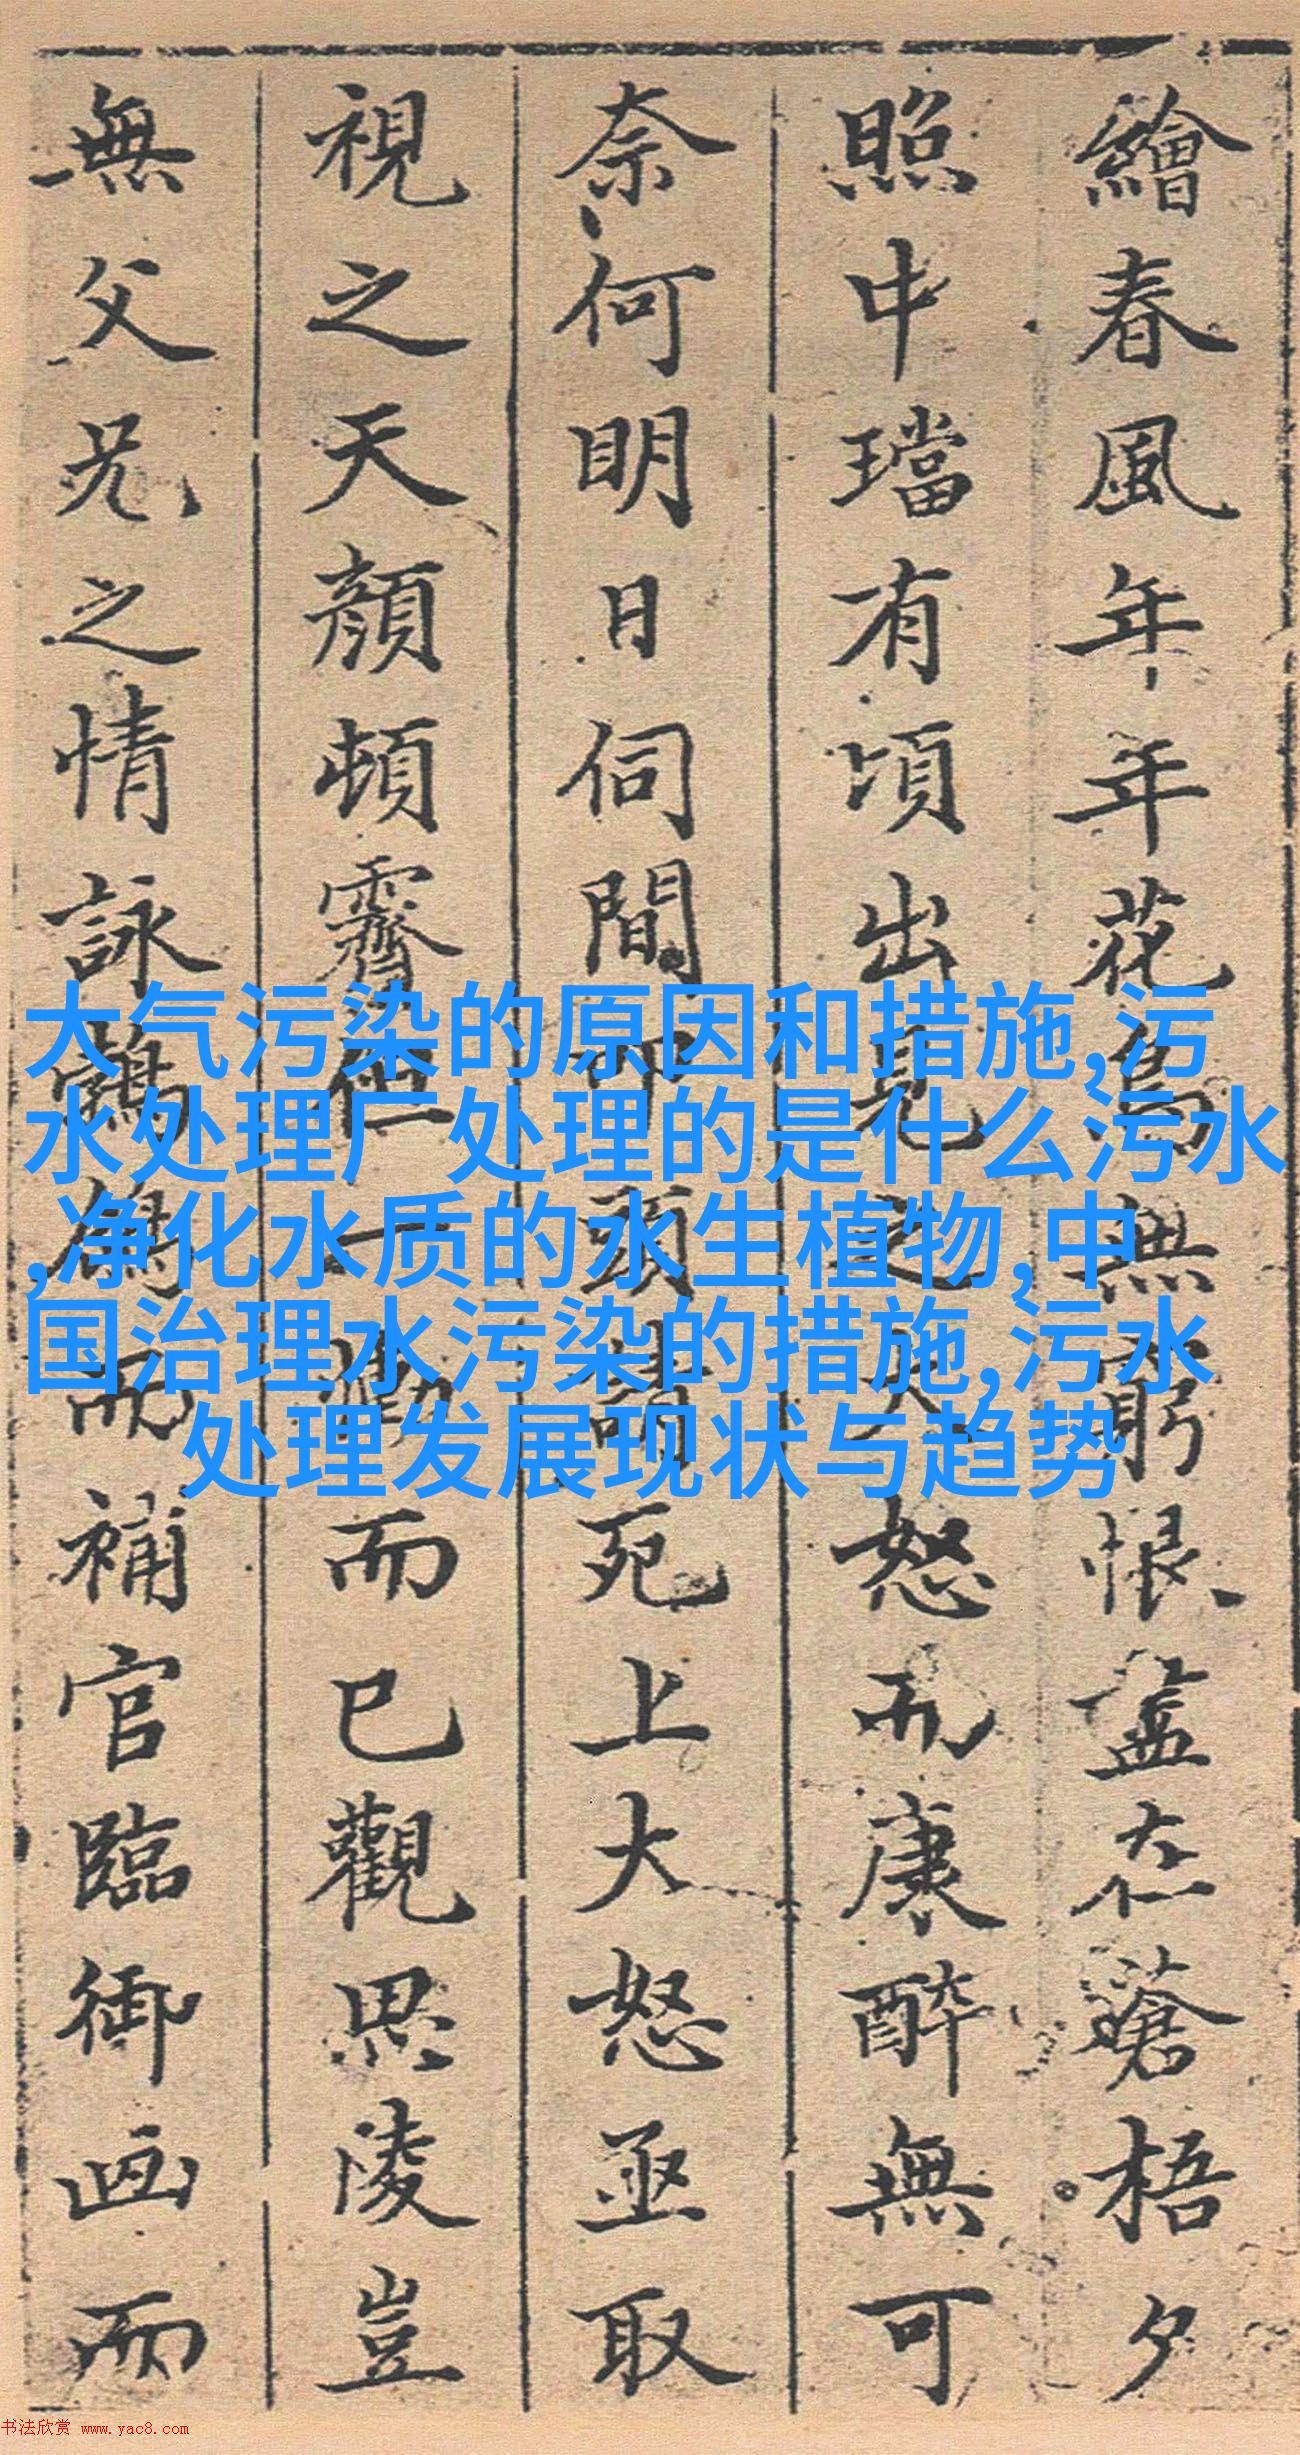 繪春風年年花鳥無窮恨盡在蒼梧夕
照中璫有頃出見之大怒而康醉無可
奈何明日伺間叩頭請死上大怒亟取
視之天顏頓霽但一慟而已觀思陵豈
無父兄之情詠鶺鴒而補官臨御画而
大气污染的原因和措施,污
水处理厂处理的是什么污水
,净化水质的水生植物,中
国治理水污染的措施,污水
处理发展现状与趋势
书法欣赏 www.yac8.com